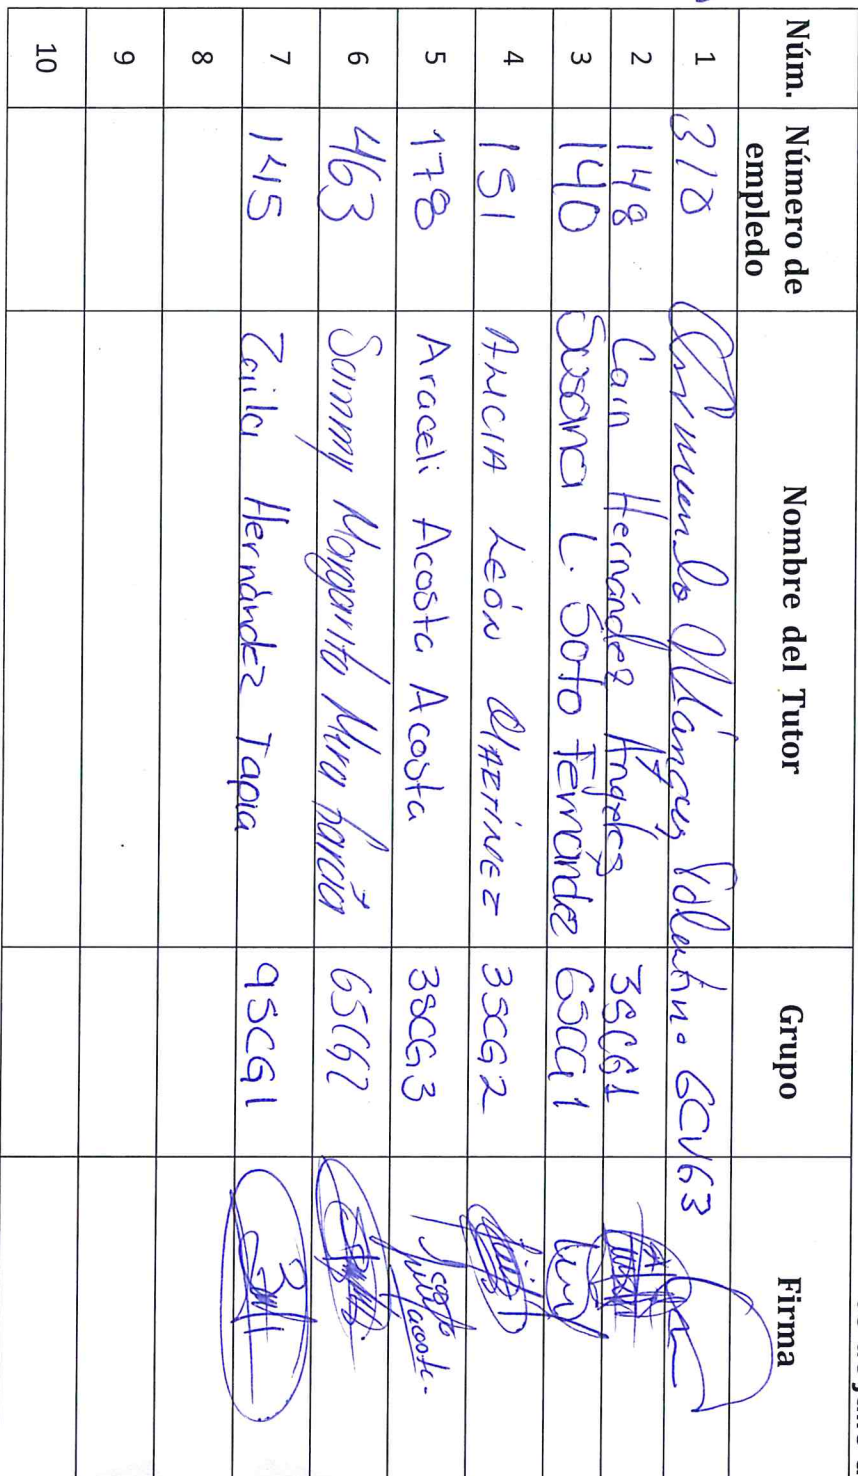 Núm. Número de empledo Nombre del Tutor Grupo Firma
1 310 Vázquez Tolentino 6CVG3
2 148 Cain Hernández Angeles 3SCG1
3 140 Susana L. Soto Fernández 6SCG1
4 151 ALICIA LEÓN MARTÍNEZ 3SCG2
5 178 Araceli Acosta Acosta 3SCG3
6 463 Sammy Margarita Mera García 6SCG2
7 145 Zaila Hernández Tapia 9SCG1
8
9
10